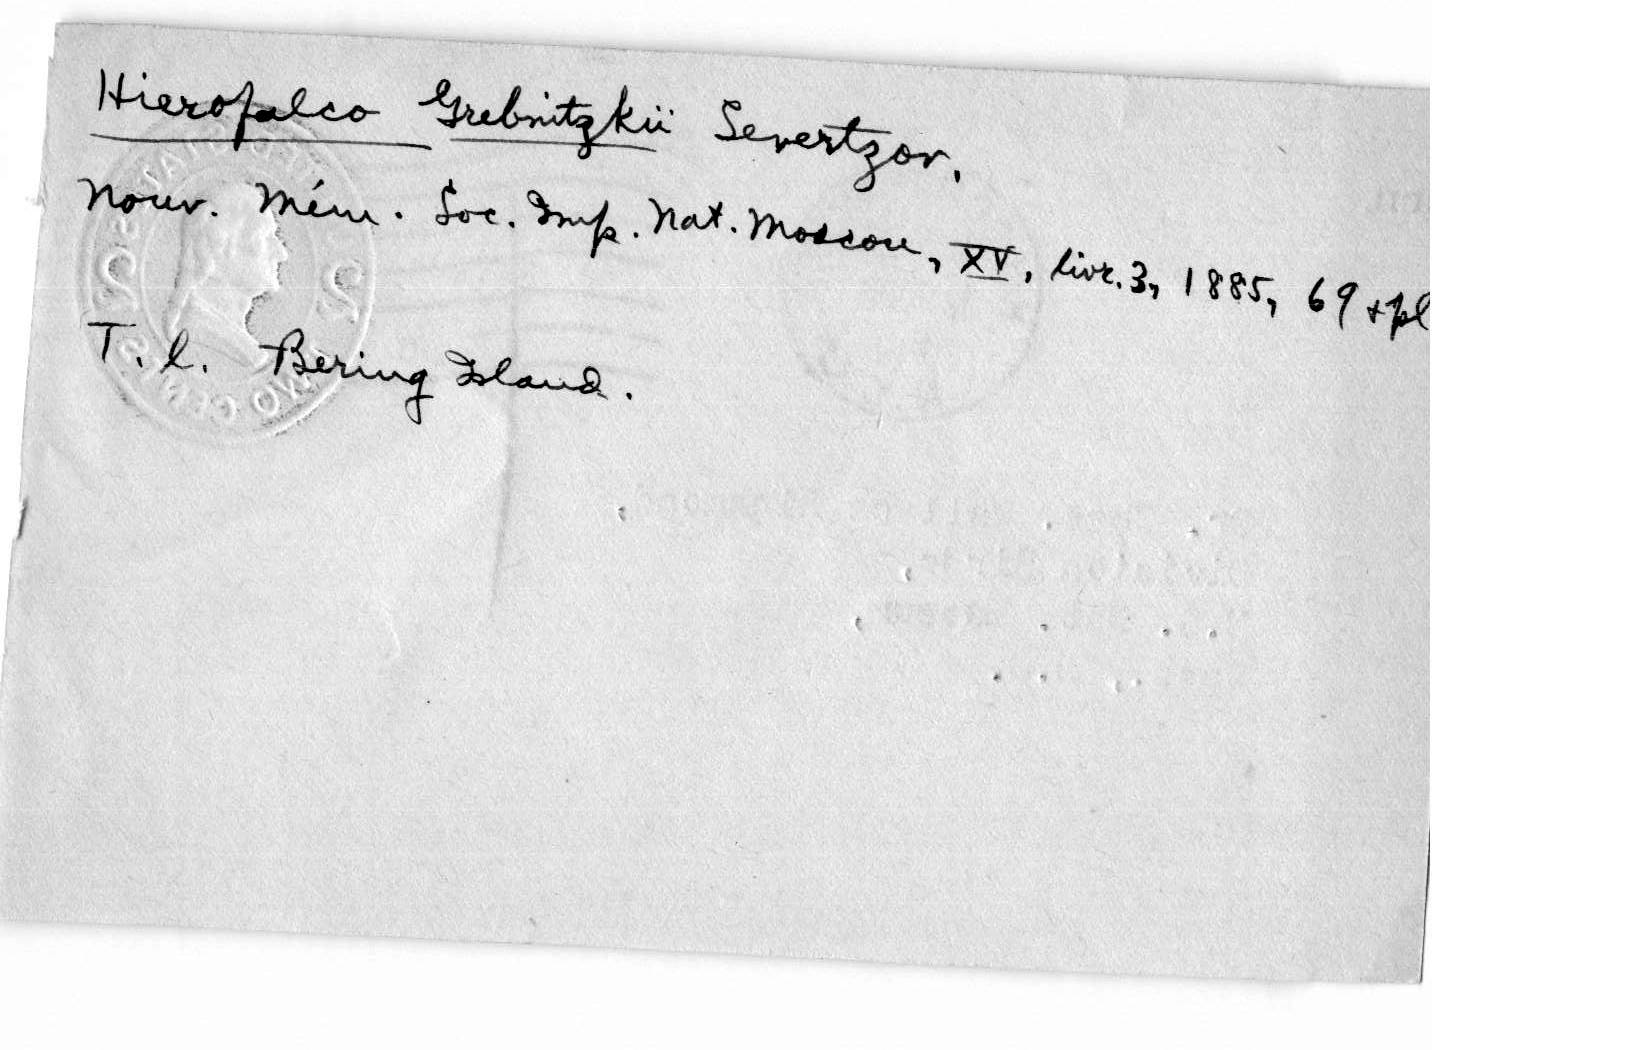 Hierofalco Grebnitzkii Severtzov.
Nouv. Mém. Soc. Imp. Nat. Moscou, XV, livr. 3, 1885, 69 + pl
T. l. Bering Island.